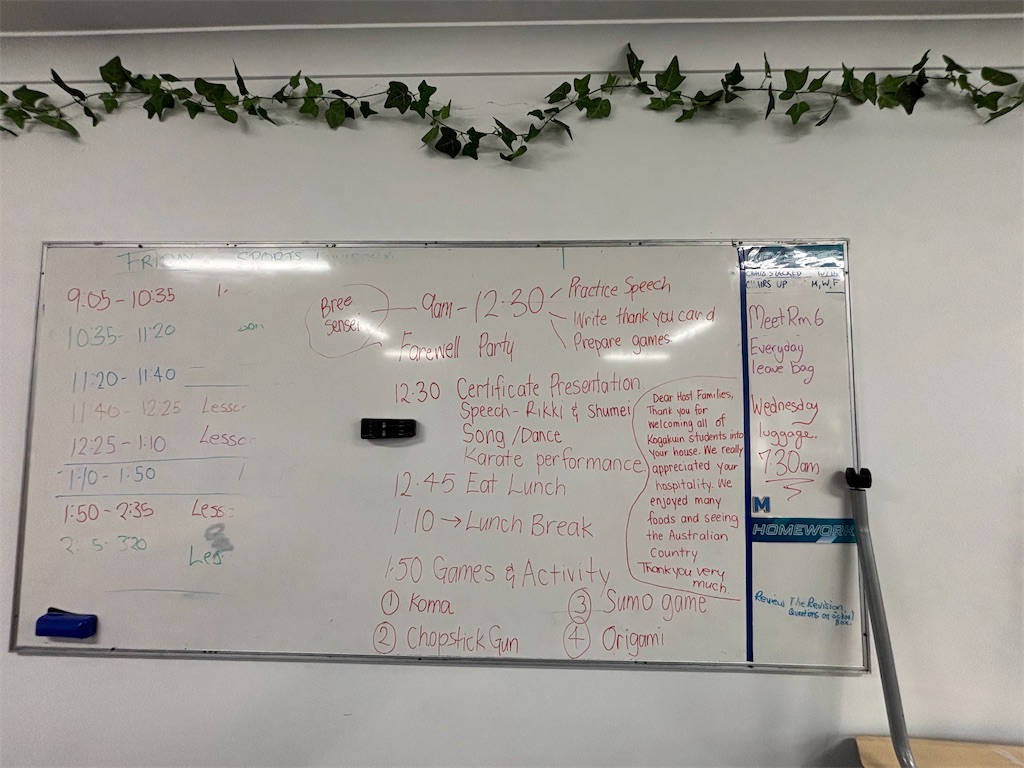 FRIDAY SPORTS
9:05-10:35
10:35- 11:20
11:20-11:40
11:40-12:25
12:25-1:10
1:10-1:50
1:50-2:35
Bree
Sensei
9am-12.30
Practice Speech
Write thank you card
Prepare games
Farewell Party
12.30 Certificate Presentation
Speech- Rikki & Shumei
Song/Dance
Karate performance
12.45 Eat Lunch
1.10→Lunch Break
1.50 Games & Activity
① Koma
② Chopstick Gun
③ Sumo game
④ Origami
Dear Host Families,
Thank you for
welcoming all of
Kogakuin students into
your house. We really
appreciated your
hospitality. We
enjoyed many
foods and seeing
the Australian
Country
Thank you very
much.
STACKED
CHAIRS UP M,W,F
Meet Rm 6
Everyday
leave bag
Wednesday
luggage.
7.30am
M
HOMEWORK
Review The Revision
Questions
Box.